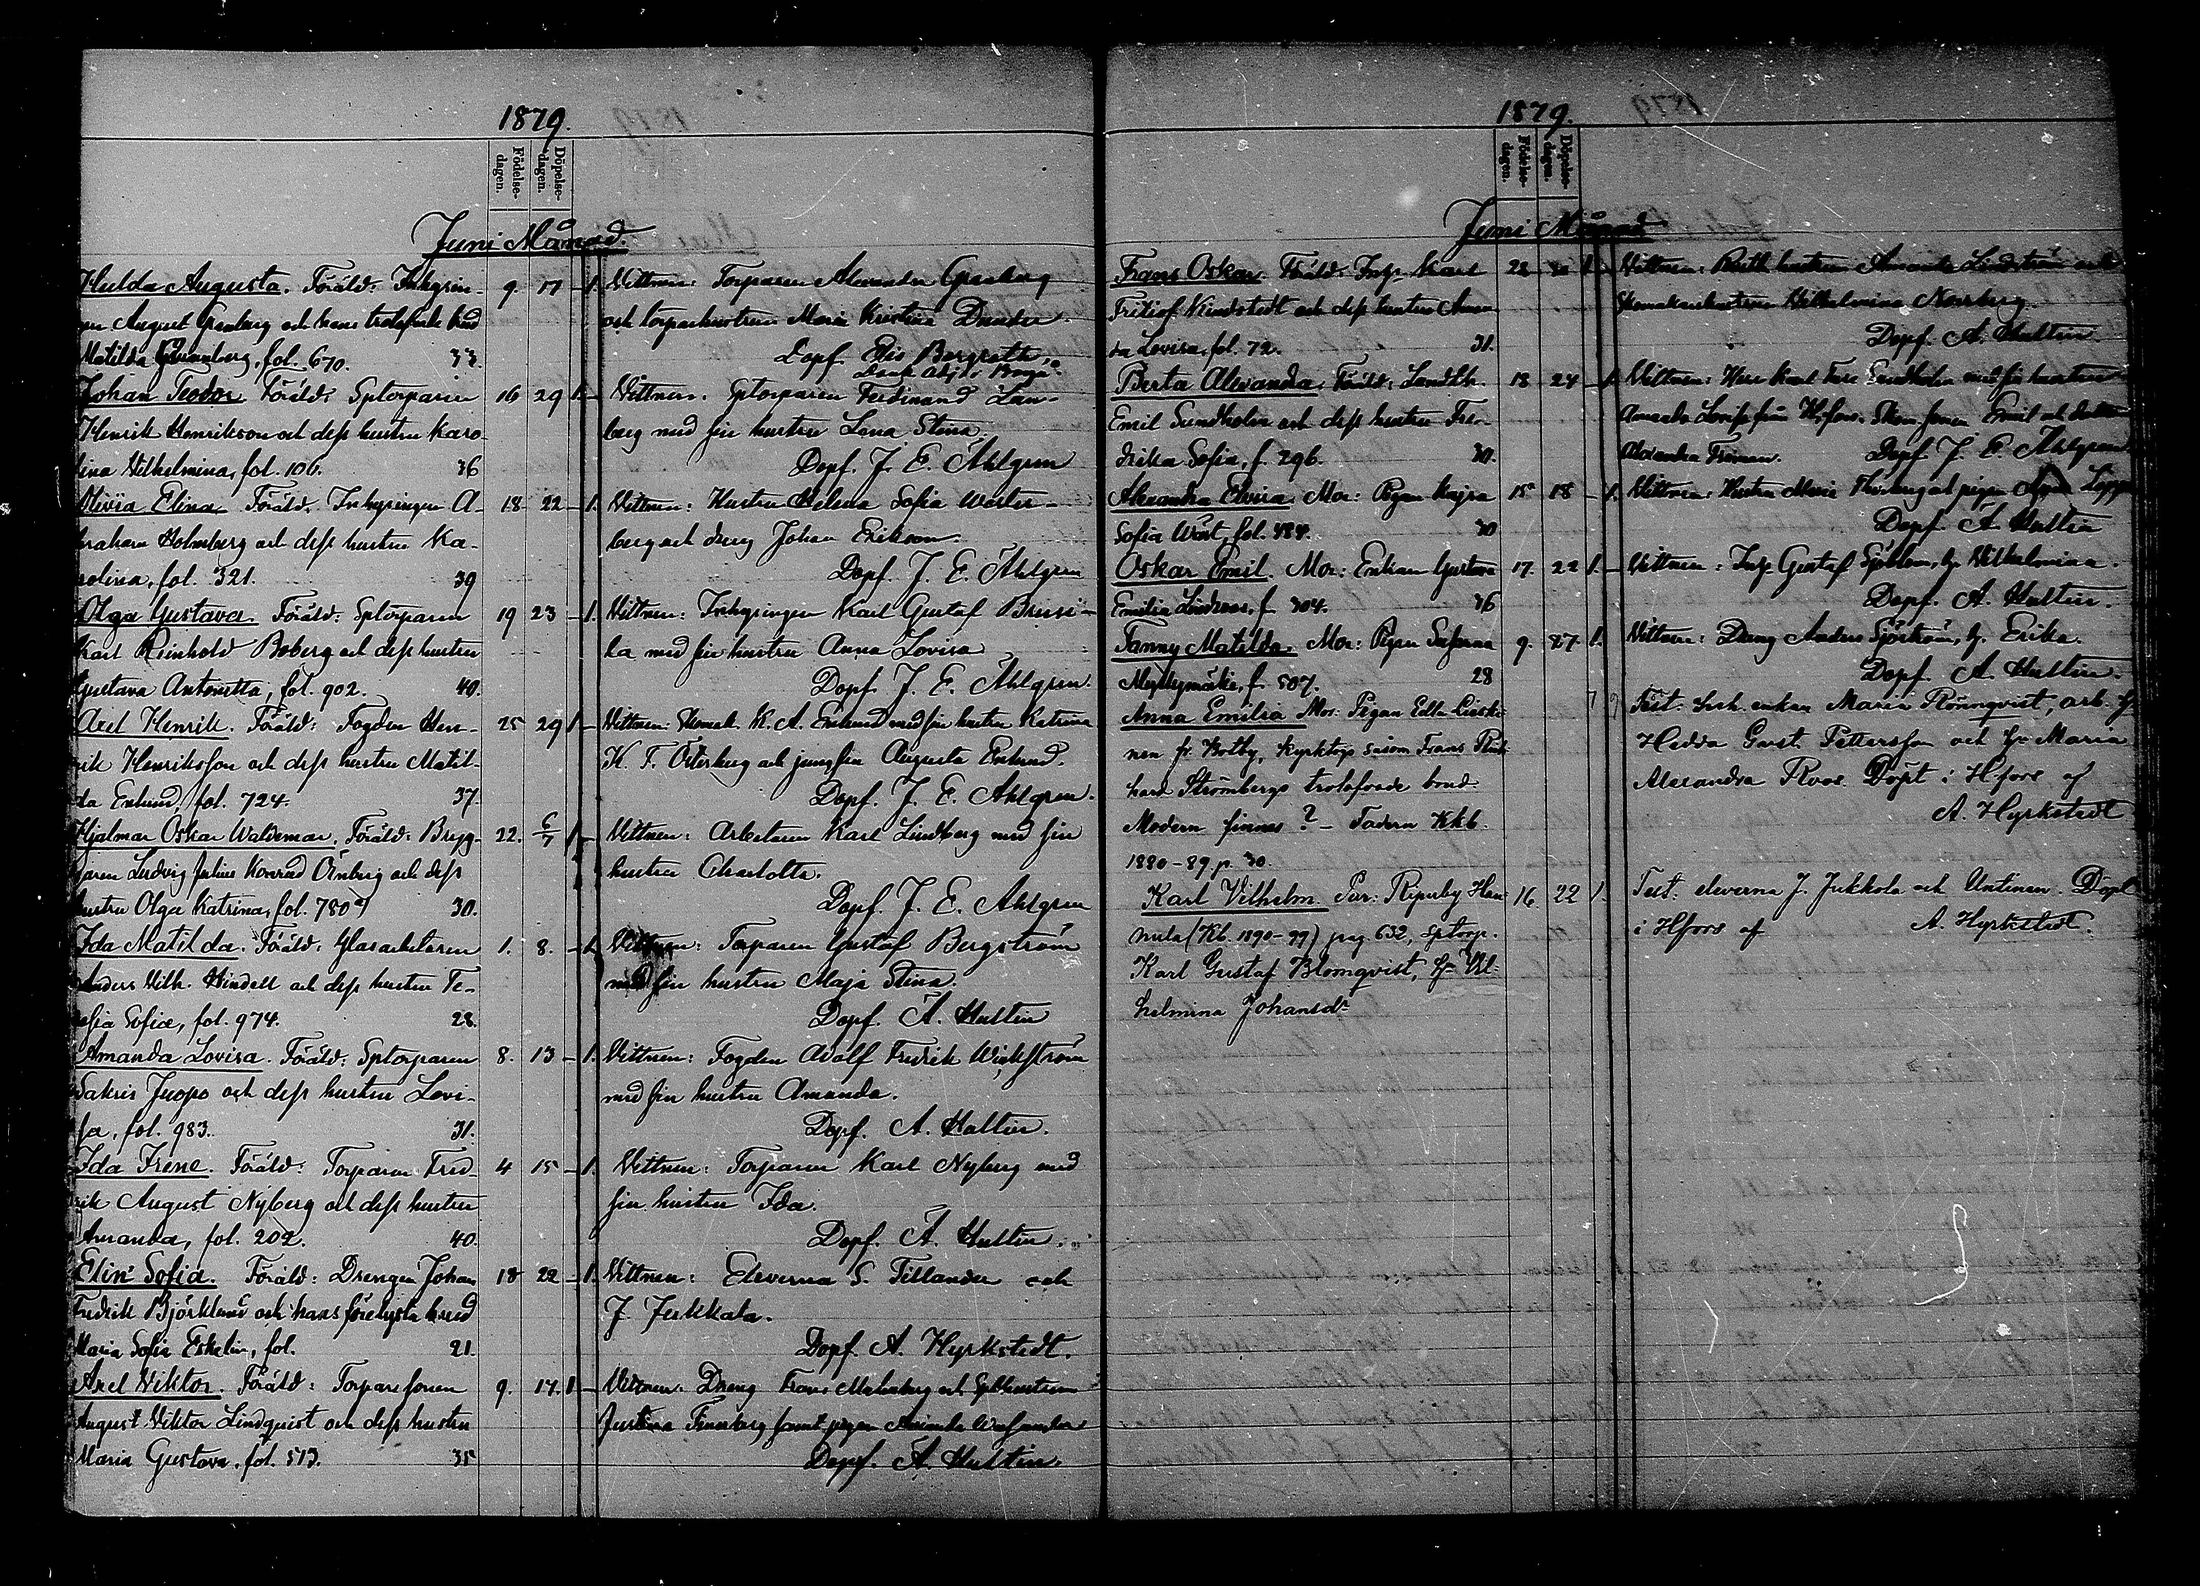 1879.
Födelse-
dagen.
Döpelse-
dagen.
Juni Månad.
Hulda Augusta. Föräld: Inhysin- 9 17 - 1.
gen August Granberg och hans trolofvade brud
Matilda Grannberg, fol. 670. 33.
Vittnen: Torparen Alexander Granberg
och torparehustrun Maria Kristina Dunder
Döpf. Elis Bergroth,
Domk. Adj. i Borgå
Johan Teodor. Föräld: Sptorparen 16 29 1 -
Henrik Henrikson och dess hustru Karo-
lina Vilhelmina, fol. 106. 36
Vittnen: Sptorparen Ferdinand Lin-
berg med sin hustru Lena Stina
Döpf. J. E. Ahlgren
Elina. Föräld: Inhysingen A- 18 22 - 1.
braham Holmberg och dess hustru Ka-
rolina, fol. 321. 39
Vittnen: Hustru Helena Sofia Wester-
berg och dreng Johan Erikson.
Döpf. J. E. Ahlgren
Olga Gustava. Föräld: Sptorparen 19 23 - 1.
Karl Reinhold Boberg och dess hustru
Gustava Antonetta, fol. 902. 40.
Vittnen: Inhysingen Karl Gustaf Brusi-
la med sin hustru Anna Lovisa
Döpf. J. E. Ahlgren.
Axel Henrik. Föräld: Fogden Hen- 25 29 1 -
rik Henriksson och dess hustru Matil-
da Enlund, fol. 724. 37.
Vittnen: K. A. Enlund med sin hustru Katrina
K. F. Österberg och jungfru Augusta Enlund.
Döpf. J. E. Ahlgren.
Hjalmar Oskar Waldemar. Föräld: Bryg- 22. 6/7 1 -
garen Ludvig Julius Konrad Örnberg och dess
hustru Olga Katrina, fol. 780 30.
Vittnen: Arbetaren Karl Lindberg med sin
hustru Charlotta.
Döpf. J. E. Ahlgren
Ida Matilda. Föräld: Glasarbetaren 1. 8. - 1.
Anders Vilh. Windell och dess hustru Te-
resia Sofia, fol. 974. 28.
Vittnen: Torparen Gustaf Bergström
med sin hustru Maja Stina.
Döpf. A. Hultin
Amanda Lovisa. Föräld: Sptorparen 8. 13 - 1.
Sakris Juopo och dess hustru Lovi-
sa, fol. 983. 31.
Vittnen: Fogden Adolf Fredrik Wickström
med sin hustru Amanda.
Döpf. A. Hultin.
Ida Irene. Föräld: Torparen Fred- 4 15 - 1.
rik August Nyberg och dess hustru
Amanda, fol. 202. 40.
Vittnen: Torparen Karl Nyberg med
sin hustru Ida.
Döpf. A. Hultin.
Elin Sofia. Föräld: Drengen Johan 18 22 - 1.
Fredrik Björklund och hans förelysta brud
Maria Sofia Eskelin, fol. 21.
Vittnen: Eleverna S. Tillander och
J. Jukkala.
Döpf. A. Hyrkstedt.
Axel Viktor. Föräld: Torparesonen 9. 17. 1 -
August Viktor Lindqvist och dess hustru
Maria Gustava, fol. 513. 35
Vittnen: Dreng Frans Malmberg och
Justina Finnberg samt pigan Amanda
Döpf. A. Hultin.
1879.
Födelse-
dagen.
Döpelse-
dagen.
Juni Månad
Frans Oskar. Föräld: Inh. Karl 22 30 1 -
Fritiof Kindstedt och dess hustru Aman-
da Lovisa, fol. 72. 31.
Vittnen: hustrun Amanda Lindström och
Skomakarehustrun Vilhelmina Norrberg.
Döpf. A. Hultin
Berta Alexandra. Föräld: Landth. 18 24 - 1.
Emil Sundholm och dess hustru Fre-
drika Sofia, f. 296. 30.
Vittnen: Herr Karl Sundholm med sin hustru
Amanda Lovisa från H:fors. Emil och
Alexandra Döpf. J. E. Ahlgren
Alexandra Elvira. Mor: Pigan Kajsa 15 18 - 1.
Sofia Wöst, fol. 484. 30
Vittnen: Hustru Maria och pigan
Döpf. A. Hultin
Oskar Emil. Mor: Enkan Gustava 17. 22 1. -
Emilia Lindroos, f. 304. 36
Vittnen: Inh. Gustaf Sjöblom, h. Vilhelmina.
Döpf. A. Hultin.
Fanny Matilda. Mor: Pigan 9. 27. 1.
f. 507. 28
Vittnen: Dreng Anders Sjöström, h. Erika.
Döpf. A. Hultin.
Anna Emilia Mor: Pigan Edla Lieski- ? ?
nen fr. Botby, Kyrktogs såsom Frans Rik-
hard Strömbergs trolofvade brud.
Modern finnes? - Fadern Kkb.
1880-89 p. 30.
Test. enkan Maria Rönnqvist, arb. h.
Hedda Gust. Pettersson och h. Maria
Alexandra Roos. Döpt i H:fors af
A. Hyrkstedt
Karl Vilhelm. Par: Ripuby Han- 16 22 1.
nula (Kb. 1890-99) pag 632, sptorp.
Karl Gustaf Blomqvist, h. Vil-
helmina Johansdr
Test. eleverna J. Jukkola och Antinen. Döpt
i Hfors af A. Hyrkstedt.